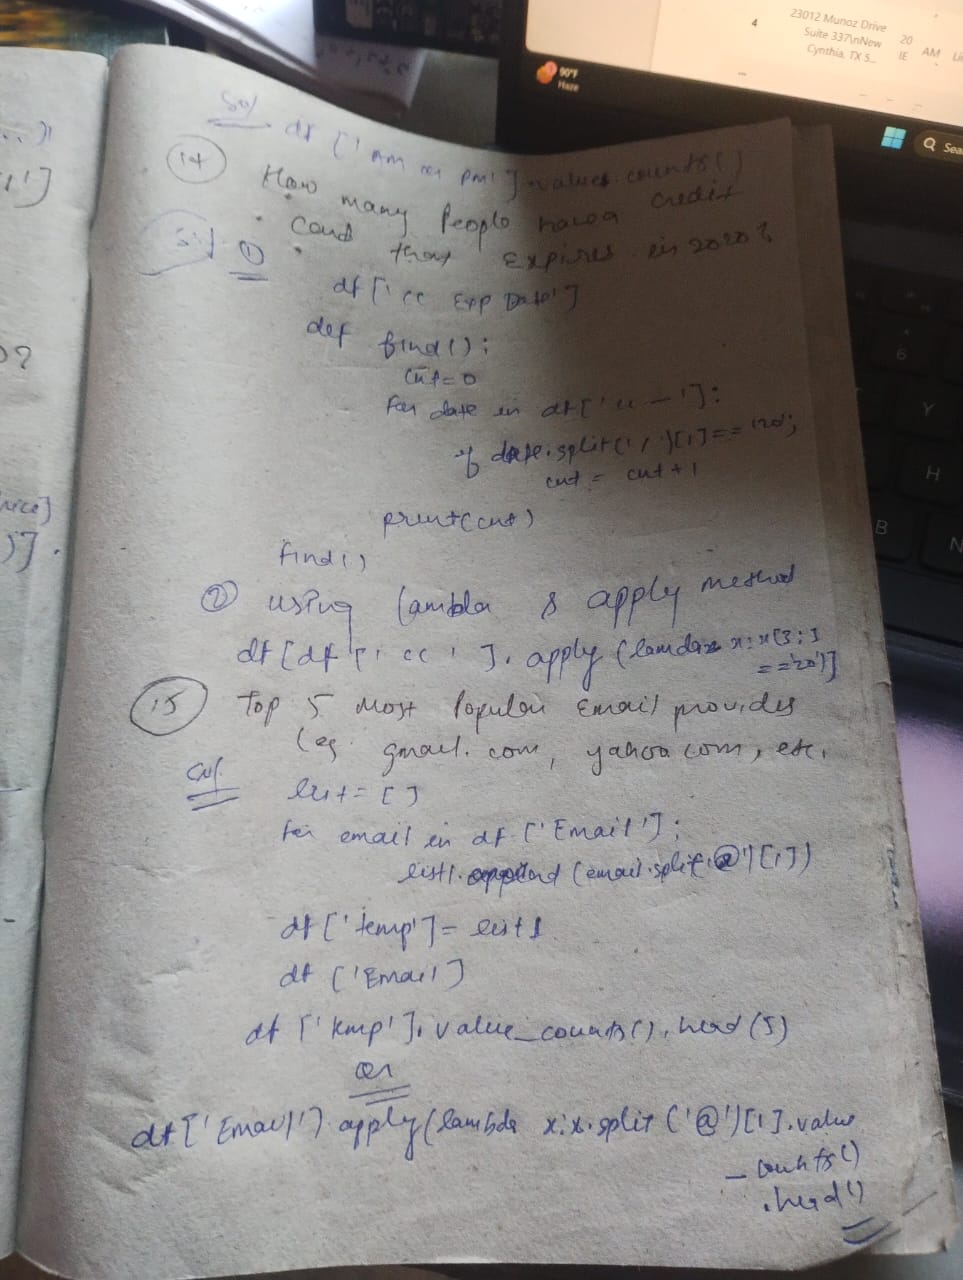 4
23012 Munoz Drive
Suite 337\nNew
Cynthia, TX 5...
20
IE
AM
90°F
Haze
Sea
Sol
df ['AM or PM'].values.counts()
14 How many People have a credit
card that Expires in 2020?
Sol ①
df ['cc Exp Date']
def find():
cnt=0
for date in df['cc —']:
if date.split('/')[1]=='20':
cnt = cnt+1
print(cnt)
find()
② using lambda & apply method
df [df ['cc'].apply (lambda x:x[3:]
=='20')]
15 Top 5 Most Popular Email provides
(eg. gmail.com, yahoo.com, etc.
Sol.
list=[]
for email in df ['Email']:
list1.append (email.split('@')[1])
df ['temp']= list1
df ['Email']
df ['temp'].value_counts().head(5)
or
df ['Email'] apply(lambda x:x.split ('@')[1].value
_counts()
.head()
6
Y
H
B
N